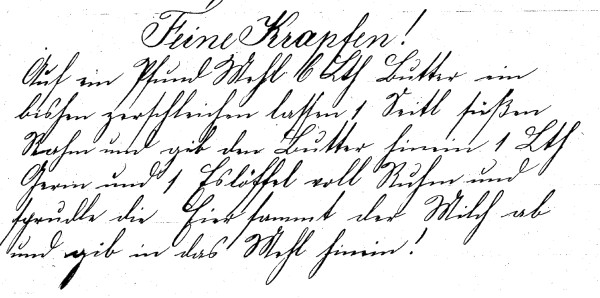 Feine Krapfen!
Auf ein Pfund Mehl 6 Lth Butter ein
bischen zerschleichen lassen 1 Seitl süßen
Rahm und gib den Butter hinein 1 Lth
Germ und 1 Eslöffel voll Ruhm und
sprudle die Eier sammt der Milch ab
und gib in das Mehl hinein!